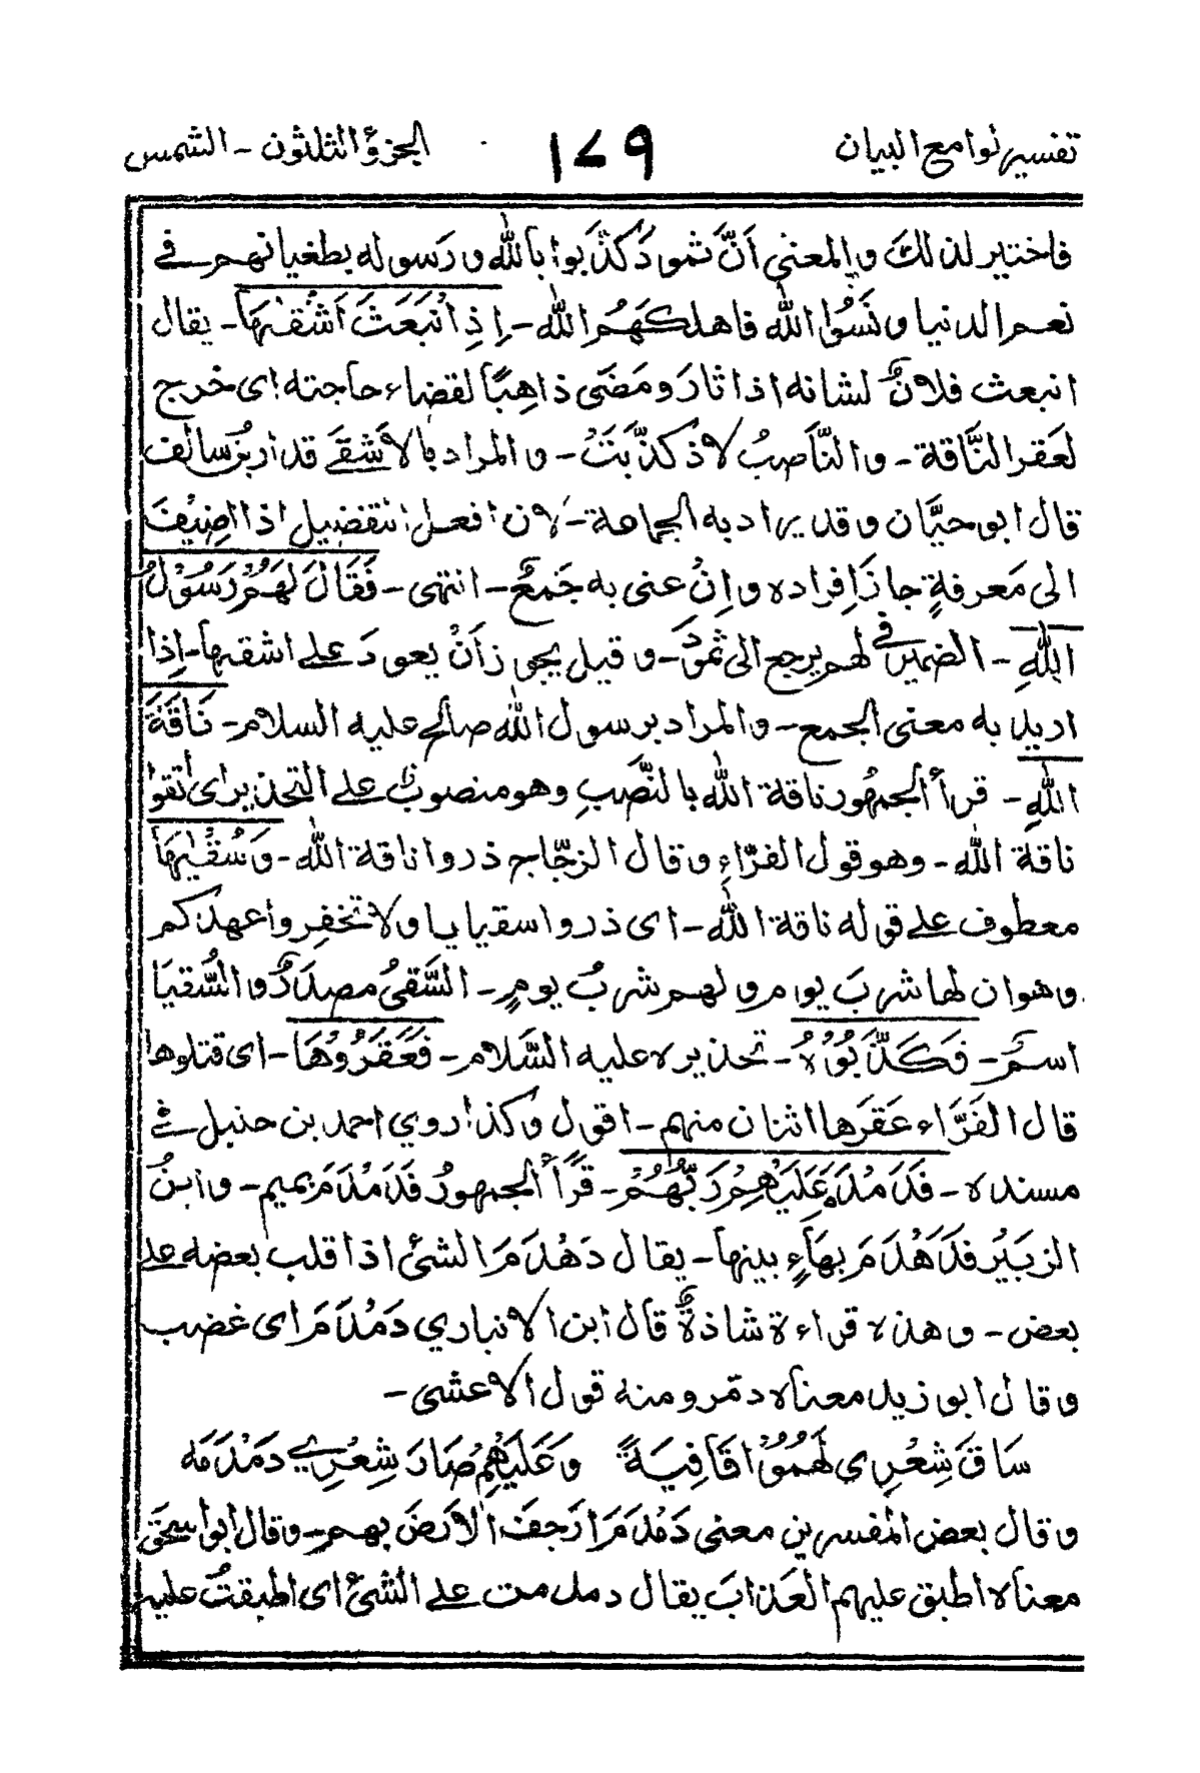 تفسير لوامع البيان ١٧٩ الجزؤ الثلثون - الشمس
فاختير لذلك والمعنى اَنَّ ثمودَ كذَّبوا باللّٰه ورَسوله بطغيانهم في
نعم الدنيا ونَسُوا اللّٰه فاهلكهُم اللّٰه - اِذِ انْۢبَعَثَ اَشْقٰىهَا - يقال
انبعث فلانٌ لشانه اذا ثارَ ومَضَى ذاهِبًا لقضاء حاجته اى خرج
لعَقر النَّاقة - والنَّاصِبُ لاذ كذَّبَتْ - والمراد بالاَشقَى قدار بنُ سالف
قال ابو حيَّان وقد يراد به الجماعة - لان افعل التفضيل اذا اضِيْفَ
الى مَعرفةٍ جازَ اِفراده واِنْ عنى به جَمعٌ - انتهى - فَقَالَ لَهُمْ رَسُوْلُ
اللّٰهِ - الضمير في لهم يرجع الى ثمودَ - وقيل يجوز اَنْ يعودَ على اشقٰىها - اِذا
اريد به معنى الجمع - والمراد برسول اللّٰه صالح عليه السلام - نَاقَةَ
اللّٰهِ - قرأ الجمهُور ناقة اللّٰه بالنَّصَبِ وهو منصوبٌ على التحذير اى اتقوا
ناقة اللّٰه - وهو قول الفرَّاءِ وقال الزجَّاج ذروا ناقة اللّٰه - وَسُقْيٰهَا
معطوف على قوله ناقة اللّٰه - اى ذروا سقياها ولا تخفِروا عهدكم
وهو ان لها شربَ يوم ولهم شربُ يومٍ - السَّقىُ مصدَرٌ والسُّقيَا
اسمٌ - فَكَذَّبُوْهُ - تحذيره عليه السَّلام - فَعَقَرُوْهَا - اى قتلوها
قال الفَرَّاء عَقَرَها اثنان منهم - اقول وكذا روي احمد بن حنبل في
مسنده - فَدَمْدَمَ عَلَيْهِمْ رَبُّهُمْ - قَرَأ الجمهورُ فَدَمْدَمَ بميم - وابنُ
الزبَيْر فدَهْدَمَ بهَاءٍ بينها - يقال دَهْدَمَ الشئ اذا قلب بعضه على
بعض - وهذه قراءة شاذةٌ قال ابن الانباري دَمْدَمَ اى غضب
وقال ابو زيد معناه دمّر ومنه قول الاعشى -
سَاقَ شِعْرِى لَهُمُوْا قَافِيَةً وَعَلَيْهِم صَارَ شِعْرِي دَمْدَمَه
وقال بعض المفسرين معنى دَمْدَمَ ارَجفَ الاَرَضَ بهم - وقال ابو اسحٰق
معناه اطبق عليهم العَذابَ يقال دمدمت على الشئ اى اطبقتُ عليه